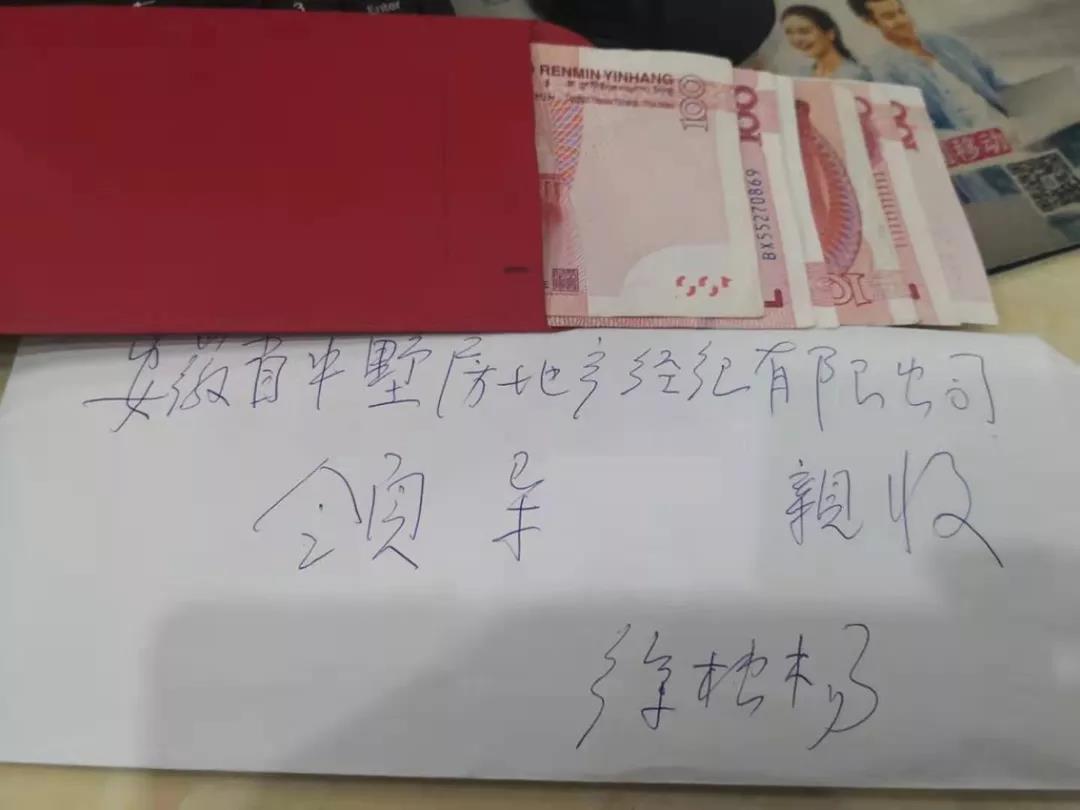 Enter
3
RENMIN YINHANG
100
100
BX55270869
移动
安徽省半墅房地产经纪有限公司
领导 親收
徐
杨